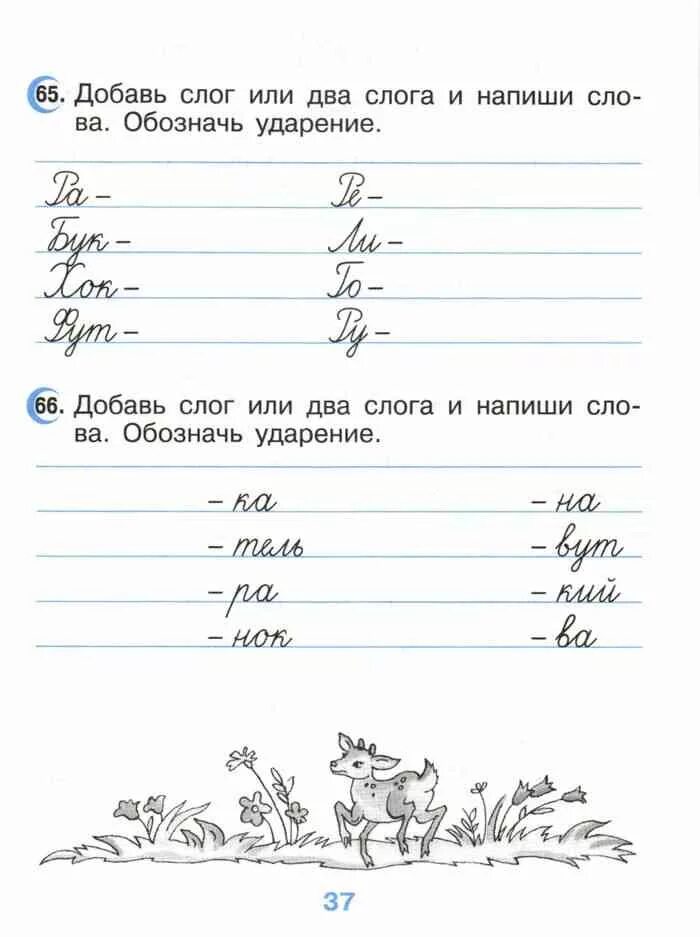 65. Добавь слог или два слога и напиши сло-
ва. Обозначь ударение.
Ра – Ре –
Бук – Ли –
Хок – Го –
Фут – Ру –
66. Добавь слог или два слога и напиши сло-
ва. Обозначь ударение.
– ка – на
– тель – вут
– ра – кий
– нок – ва
37